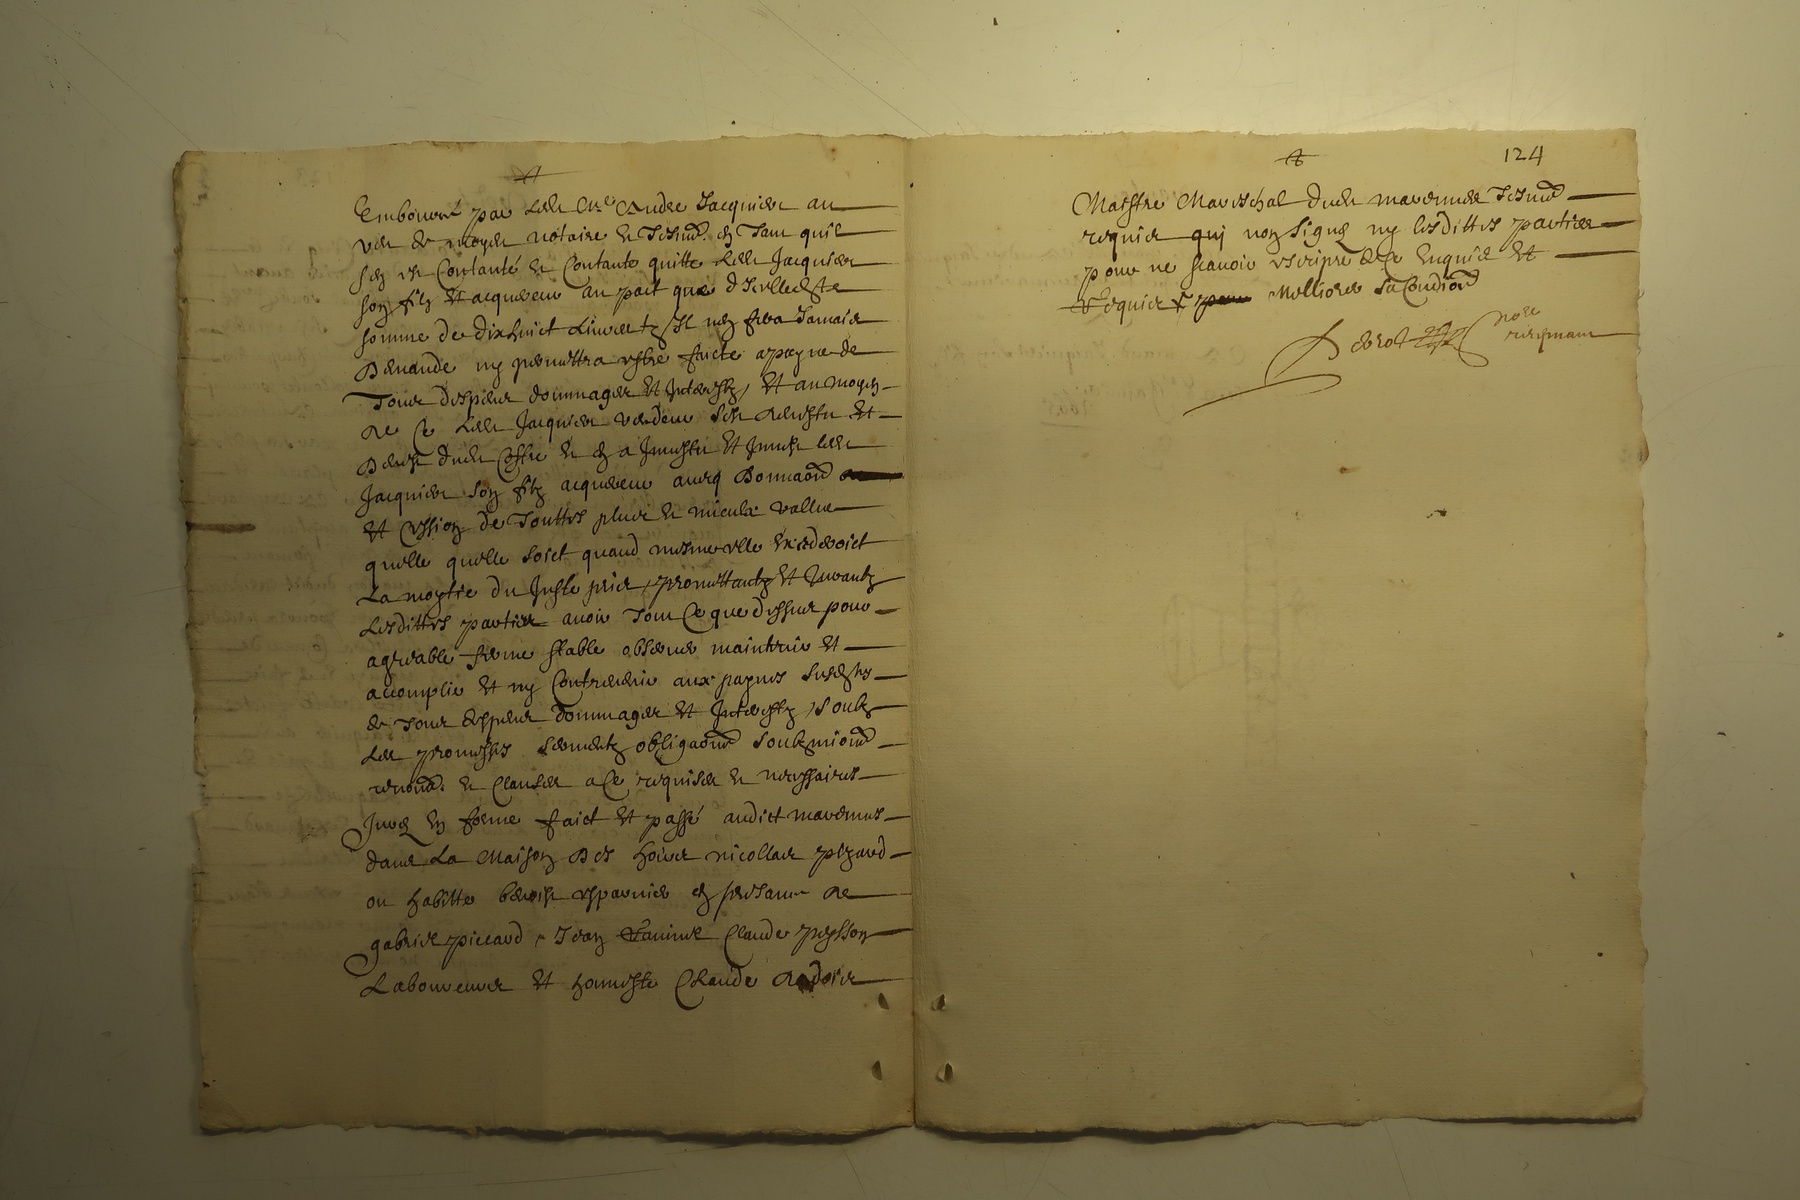 Embourcé par ledit Me Andre Jacquier au
veu de moyds notaire et tesmd. en tant quil
sen est contanté et contante quitte ledit Jacquier
son filz et acquereur au pact que dicelleditte
somme de dixhuict livres tz Il nen fera Jamais
demande ny permettra estre faicte a payne de
tous despens dommages et Interestz, et au moyen
de ce ledit Jacquier vendeur sest devestu et
devest dudit et en a Jnvestu et Jnvest ledit
Jacquier son filz acquereur avecq donnaond
et cession de touttes plus et mieulx vallue
quelle quelle soict quand mesme elle excederoict
La moytie du Juste pris, promettantz et Jurantz
Lesdittes parties avoir tout ce que dessus pour
agreable ferme stable observer maintenir et
accomplir et ny contrevenir aux paynes susdstes
de tous despens dommages et Interestz, soubz
les promesses sermentz obligaond soubzmiond
renond. et clauses a ce requises et necessaires
Jures en forme faict et passé audict
dans La maison des hoirs nicollas
ou habitte benoist en presance de
gabriel piccard, Jean Claude
Laboureurs et honneste Claude
124
Maistre Mareschal dudit tesmd
requis quj non signe ny lesdittes parties
pour ne scavoir escripre de ce Enquis et
Requis Melliores sa Condiond
Derot nore